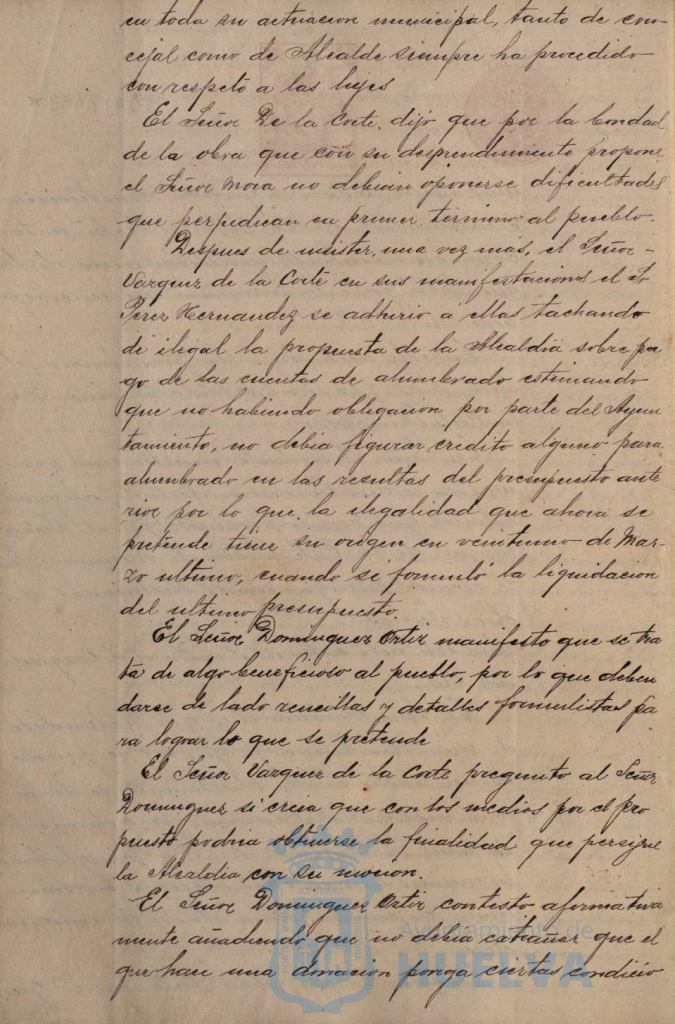 en toda su actuacion municipal, tanto de con-
cejal como de Alcalde siempre ha procedido
con respeto a las leyes
El Señor De la Corte dijo que por la bondad
de la obra que con su desprendimiento propone
el Señor Mora no debian oponerse dificultades
que perjudican en primer termino al pueblo.
Despues de insistir, una vez mas, el Señor-
Vazquez de la Corte en sus manifestaciones el Sr
Perez Hernandez se adhirio á ellas tachando
de ilegal la propuesta de la Alcaldia sobre pa
go de las cuentas de alumbrado estimando
que no habiendo obligacion por parte del Ayun
tamiento, no debia figurar credito alguno para
alumbrado en las resultas del presupuesto ante
rior por lo que la ilegalidad que ahora se
pretende tiene su origen en veintiuno de Mar-
zo ultimo, cuando se formuló la liquidacion
del ultimo presupuesto.
El Señor Dominguez Ortiz manifesto que se tra
ta de algo beneficioso al pueblo, por lo que deben
darse de lado rencillas y detalles formulistas pa
ra lograr lo que se pretende
El Señor Vazquez de la Corte pregunto al Señor
Dominguez si creia que con los medios por el pro
puesto podria obtenerse la finalidad que persigue
la Alcaldia con su mocion.
El Señor Dominguez Ortiz contesto afirmativa
mente añadiendo que no debia extrañar que el
que hace una donacion ponga ciertas condicio
Ayuntamiento de
HUELVA